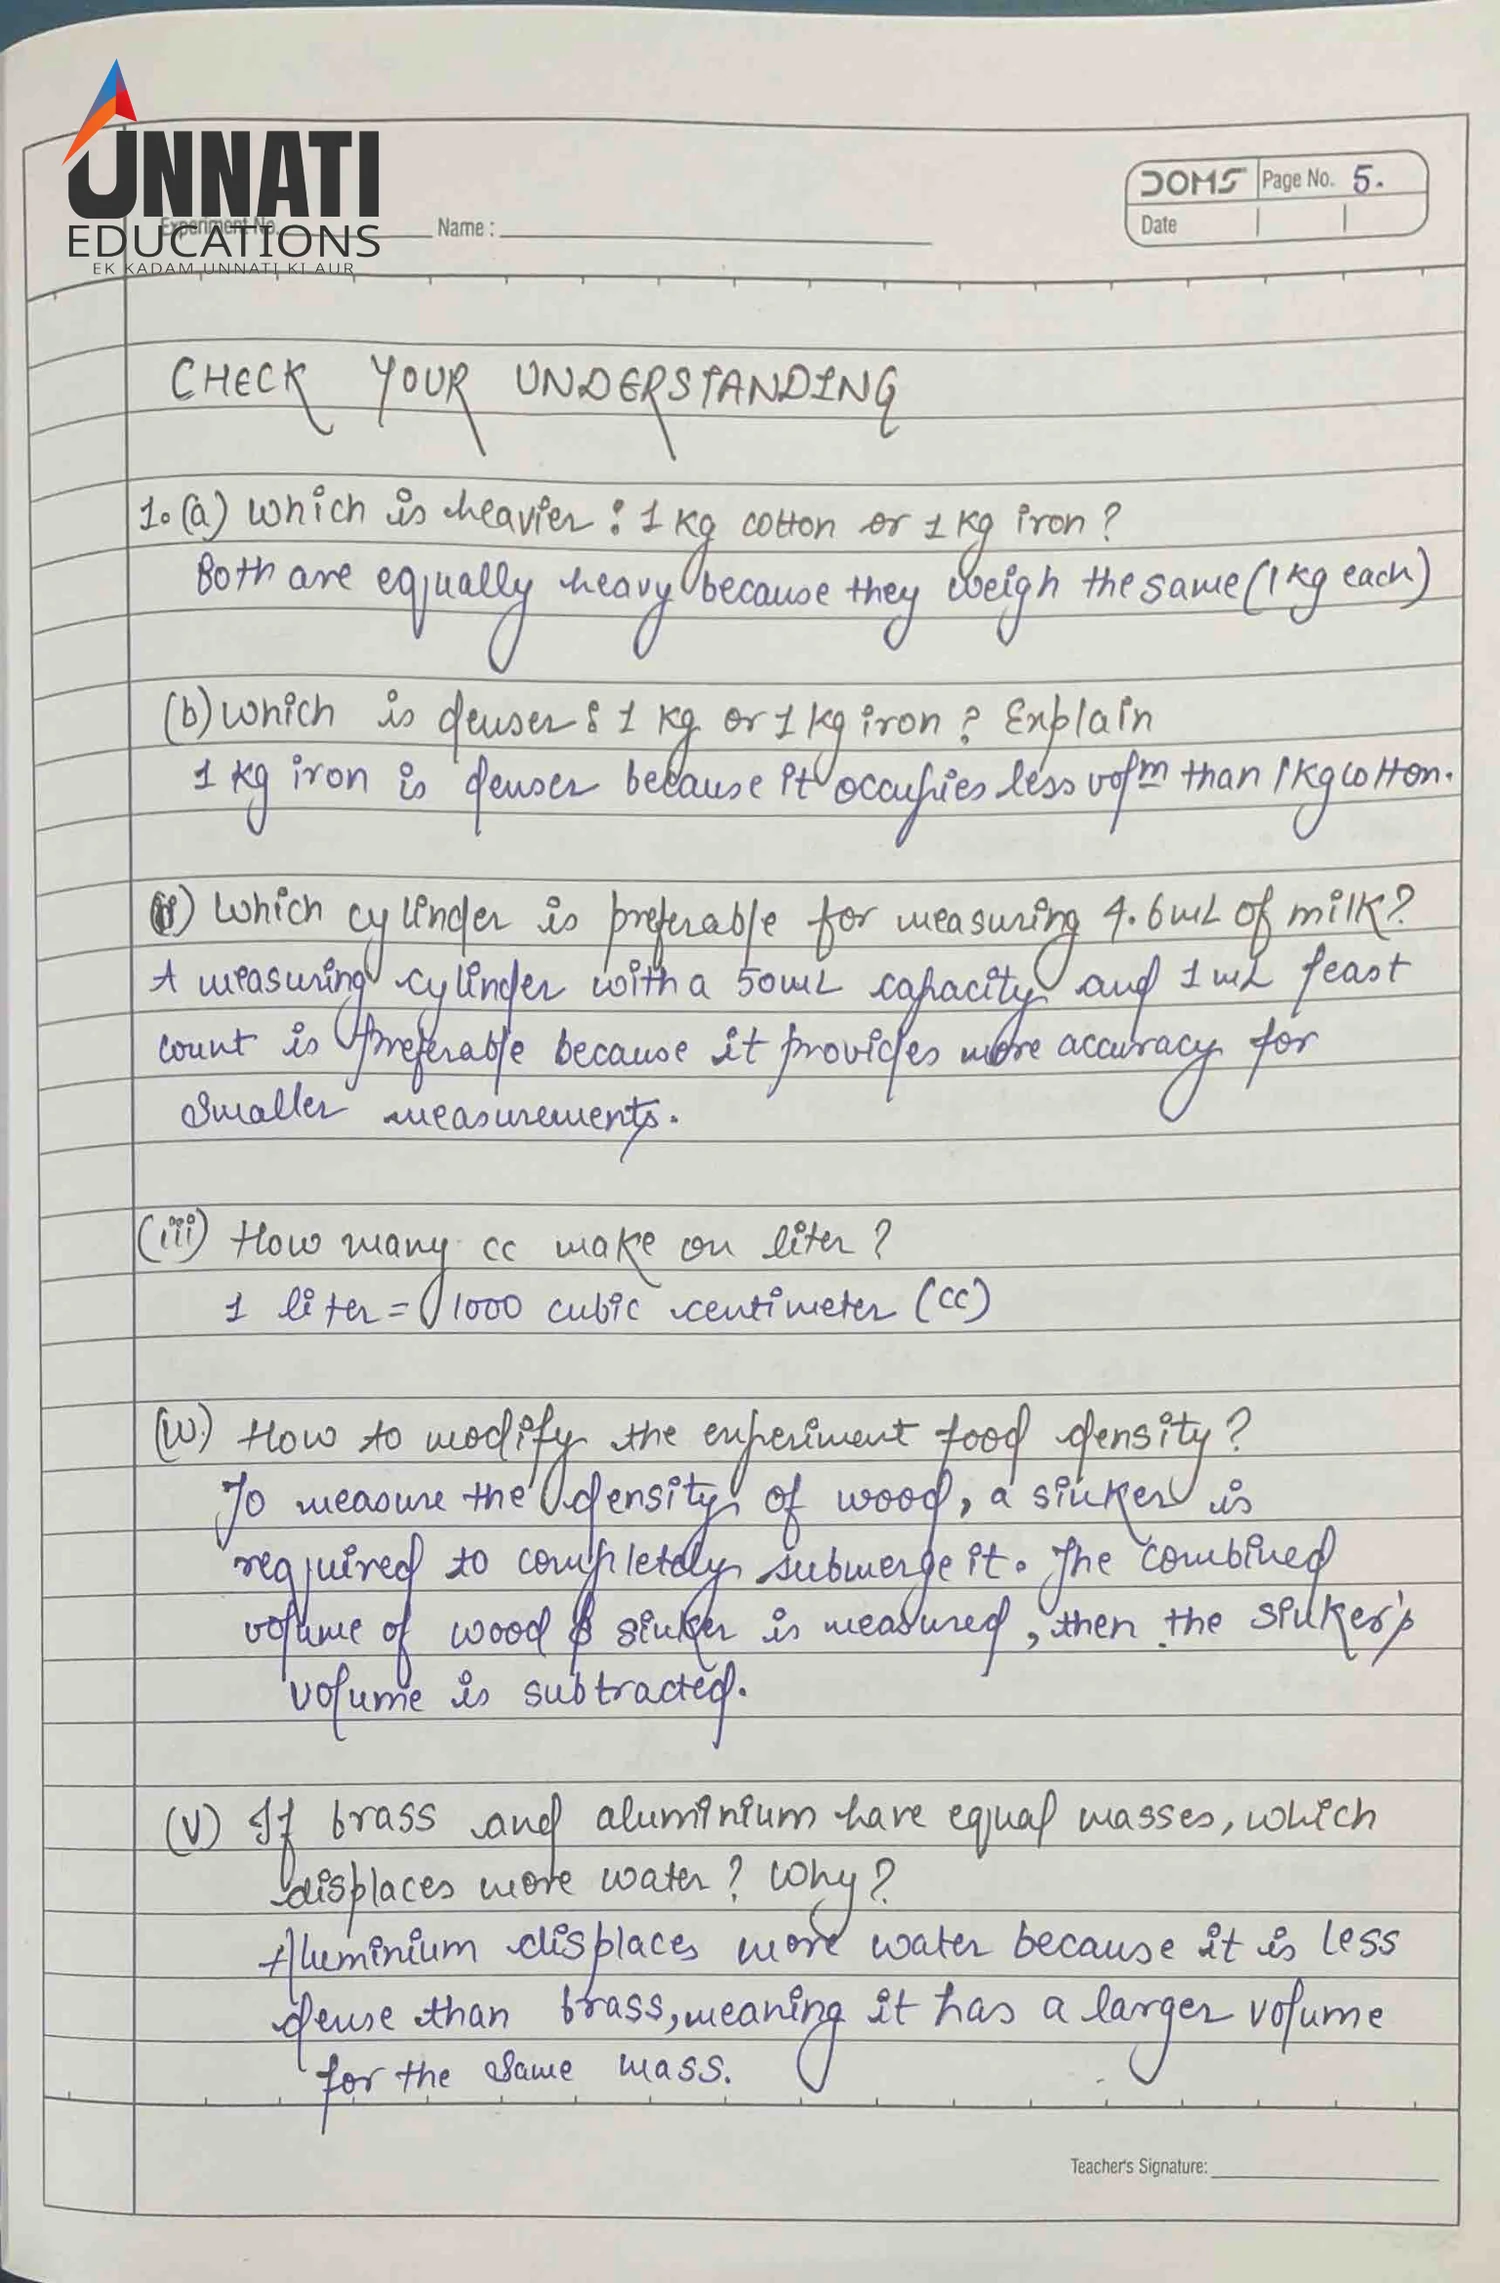 UNNATI
EDUCATIONS
EK KADAM UNNATI KI AUR
Experiment No. Name :
DOMS Page No. 5.
Date
CHECK YOUR UNDERSTANDING
1. (a) Which is heavier : 1 kg cotton or 1 kg iron ?
Both are equally heavy because they weigh the same (1 kg each)
(b) Which is denser : 1 kg or 1 kg iron ? Explain
1 kg iron is denser because it occupies less volm than 1 kg cotton.
(ii) Which cylinder is preferable for measuring 4.6 mL of milk?
A measuring cylinder with a 50 mL capacity and 1 mL least
count is preferable because it provides more accuracy for
smaller measurements.
(iii) How many cc make on liter ?
1 liter = 1000 cubic centimeter (cc)
(iv) How to modify the experiment food density ?
To measure the density of wood, a sinker is
required to completely submerge it. The combined
volume of wood & sinker is measured, then the sinker's
volume is subtracted.
(v) If brass and aluminium have equal masses, which
displaces more water ? Why ?
Aluminium displaces more water because it is less
dense than brass, meaning it has a larger volume
for the same mass.
Teacher's Signature: